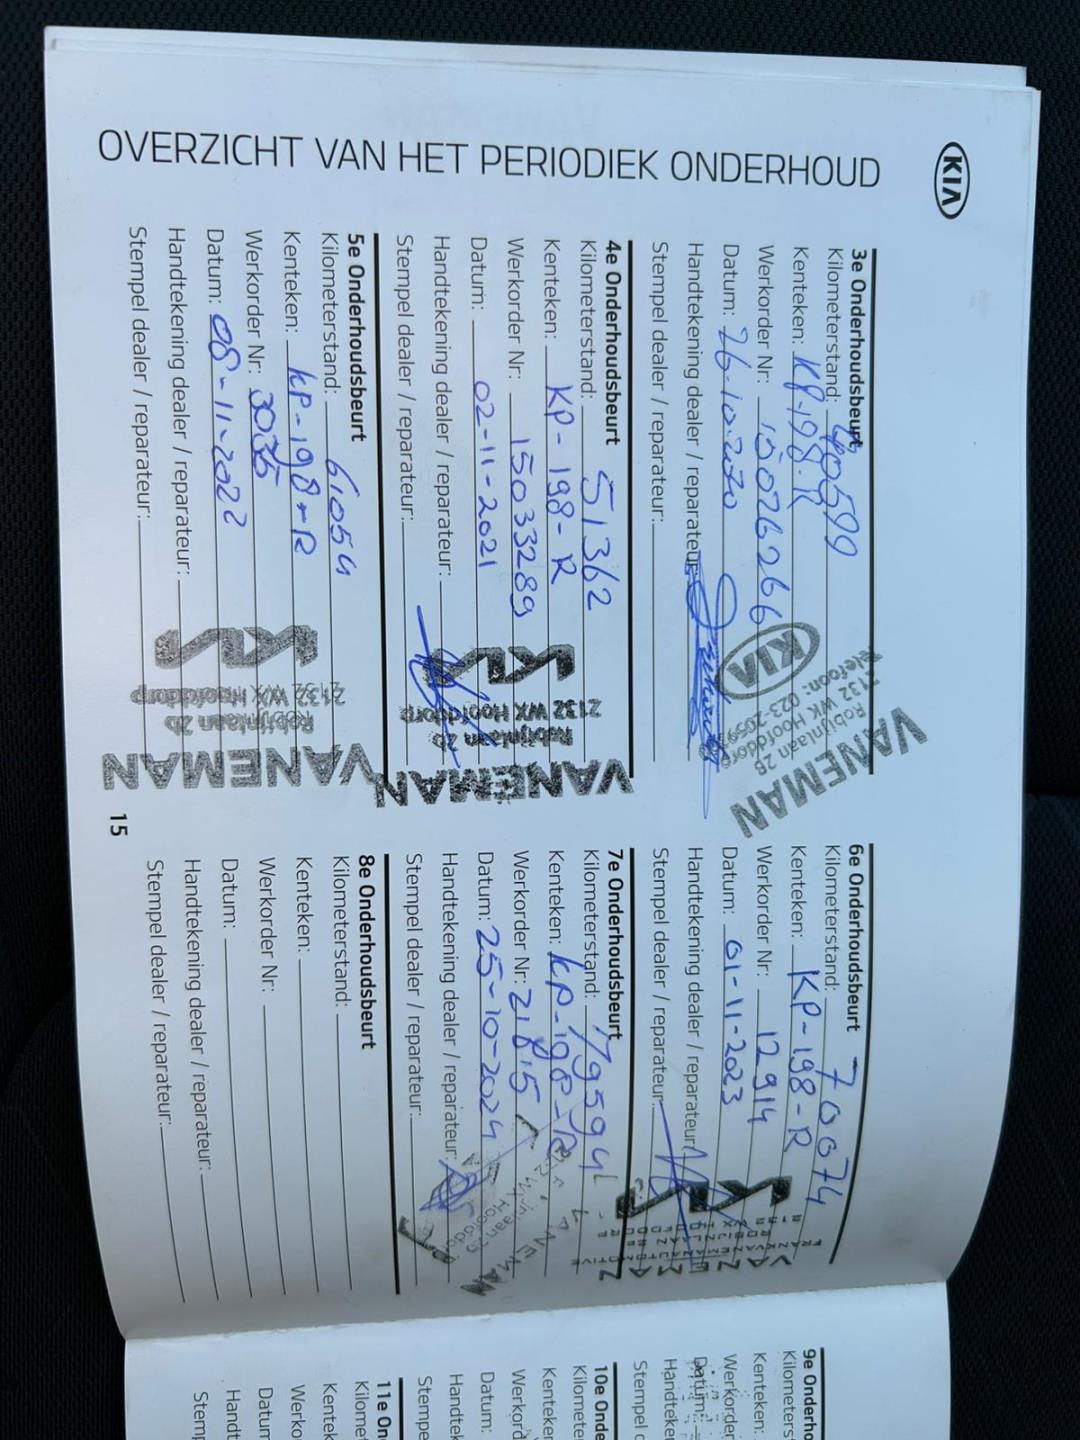 KIA
OVERZICHT VAN HET PERIODIEK ONDERHOUD
3e Onderhoudsbeurt
Kilometerstand: 40599
Kenteken: KP-198-R
Werkorder Nr: 15026266
Datum: 26-10-2020
Handtekening dealer / reparateur:
Stempel dealer / reparateur:
KIA
VANEMAN
Robijnlaan 2B
2132 WX Hoofddorp
Telefoon: 023-
4e Onderhoudsbeurt
Kilometerstand: 51362
Kenteken: KP-198-R
Werkorder Nr: 15033289
Datum: 02-11-2021
Handtekening dealer / reparateur:
Stempel dealer / reparateur:
VANEMAN
Robijnlaan 2b
2132 WX Hoofddorp
KIA
5e Onderhoudsbeurt
Kilometerstand: 61054
Kenteken: KP-198-R
Werkorder Nr:
Datum: 08-11-2022
Handtekening dealer / reparateur:
Stempel dealer / reparateur:
VANEMAN
Robijnlaan 2b
2132 WX Hoofddorp
KIA
6e Onderhoudsbeurt
Kilometerstand: 70074
Kenteken: KP-198-R
Werkorder Nr: 12914
Datum: 01-11-2023
Handtekening dealer / reparateur:
Stempel dealer / reparateur:
KIA
7e Onderhoudsbeurt
Kilometerstand: 79594
Kenteken: KP-198-R
Werkorder Nr: 21815
Datum: 25-10-2024
Handtekening dealer / reparateur:
Stempel dealer / reparateur:
VANEMAN
8e Onderhoudsbeurt
Kilometerstand:
Kenteken:
Werkorder Nr:
Datum:
Handtekening dealer / reparateur:
Stempel dealer / reparateur:
15
9e Onderho
Kilometerst
Kenteken:
Werkorder
Datum:
Handteken
Stempel d
10e Onde
Kilomete
Kenteken
Werkord
Datum:
Handtek
Stempe
11e On
Kilomet
Kentek
Werko
Datum
Handt
Stemp